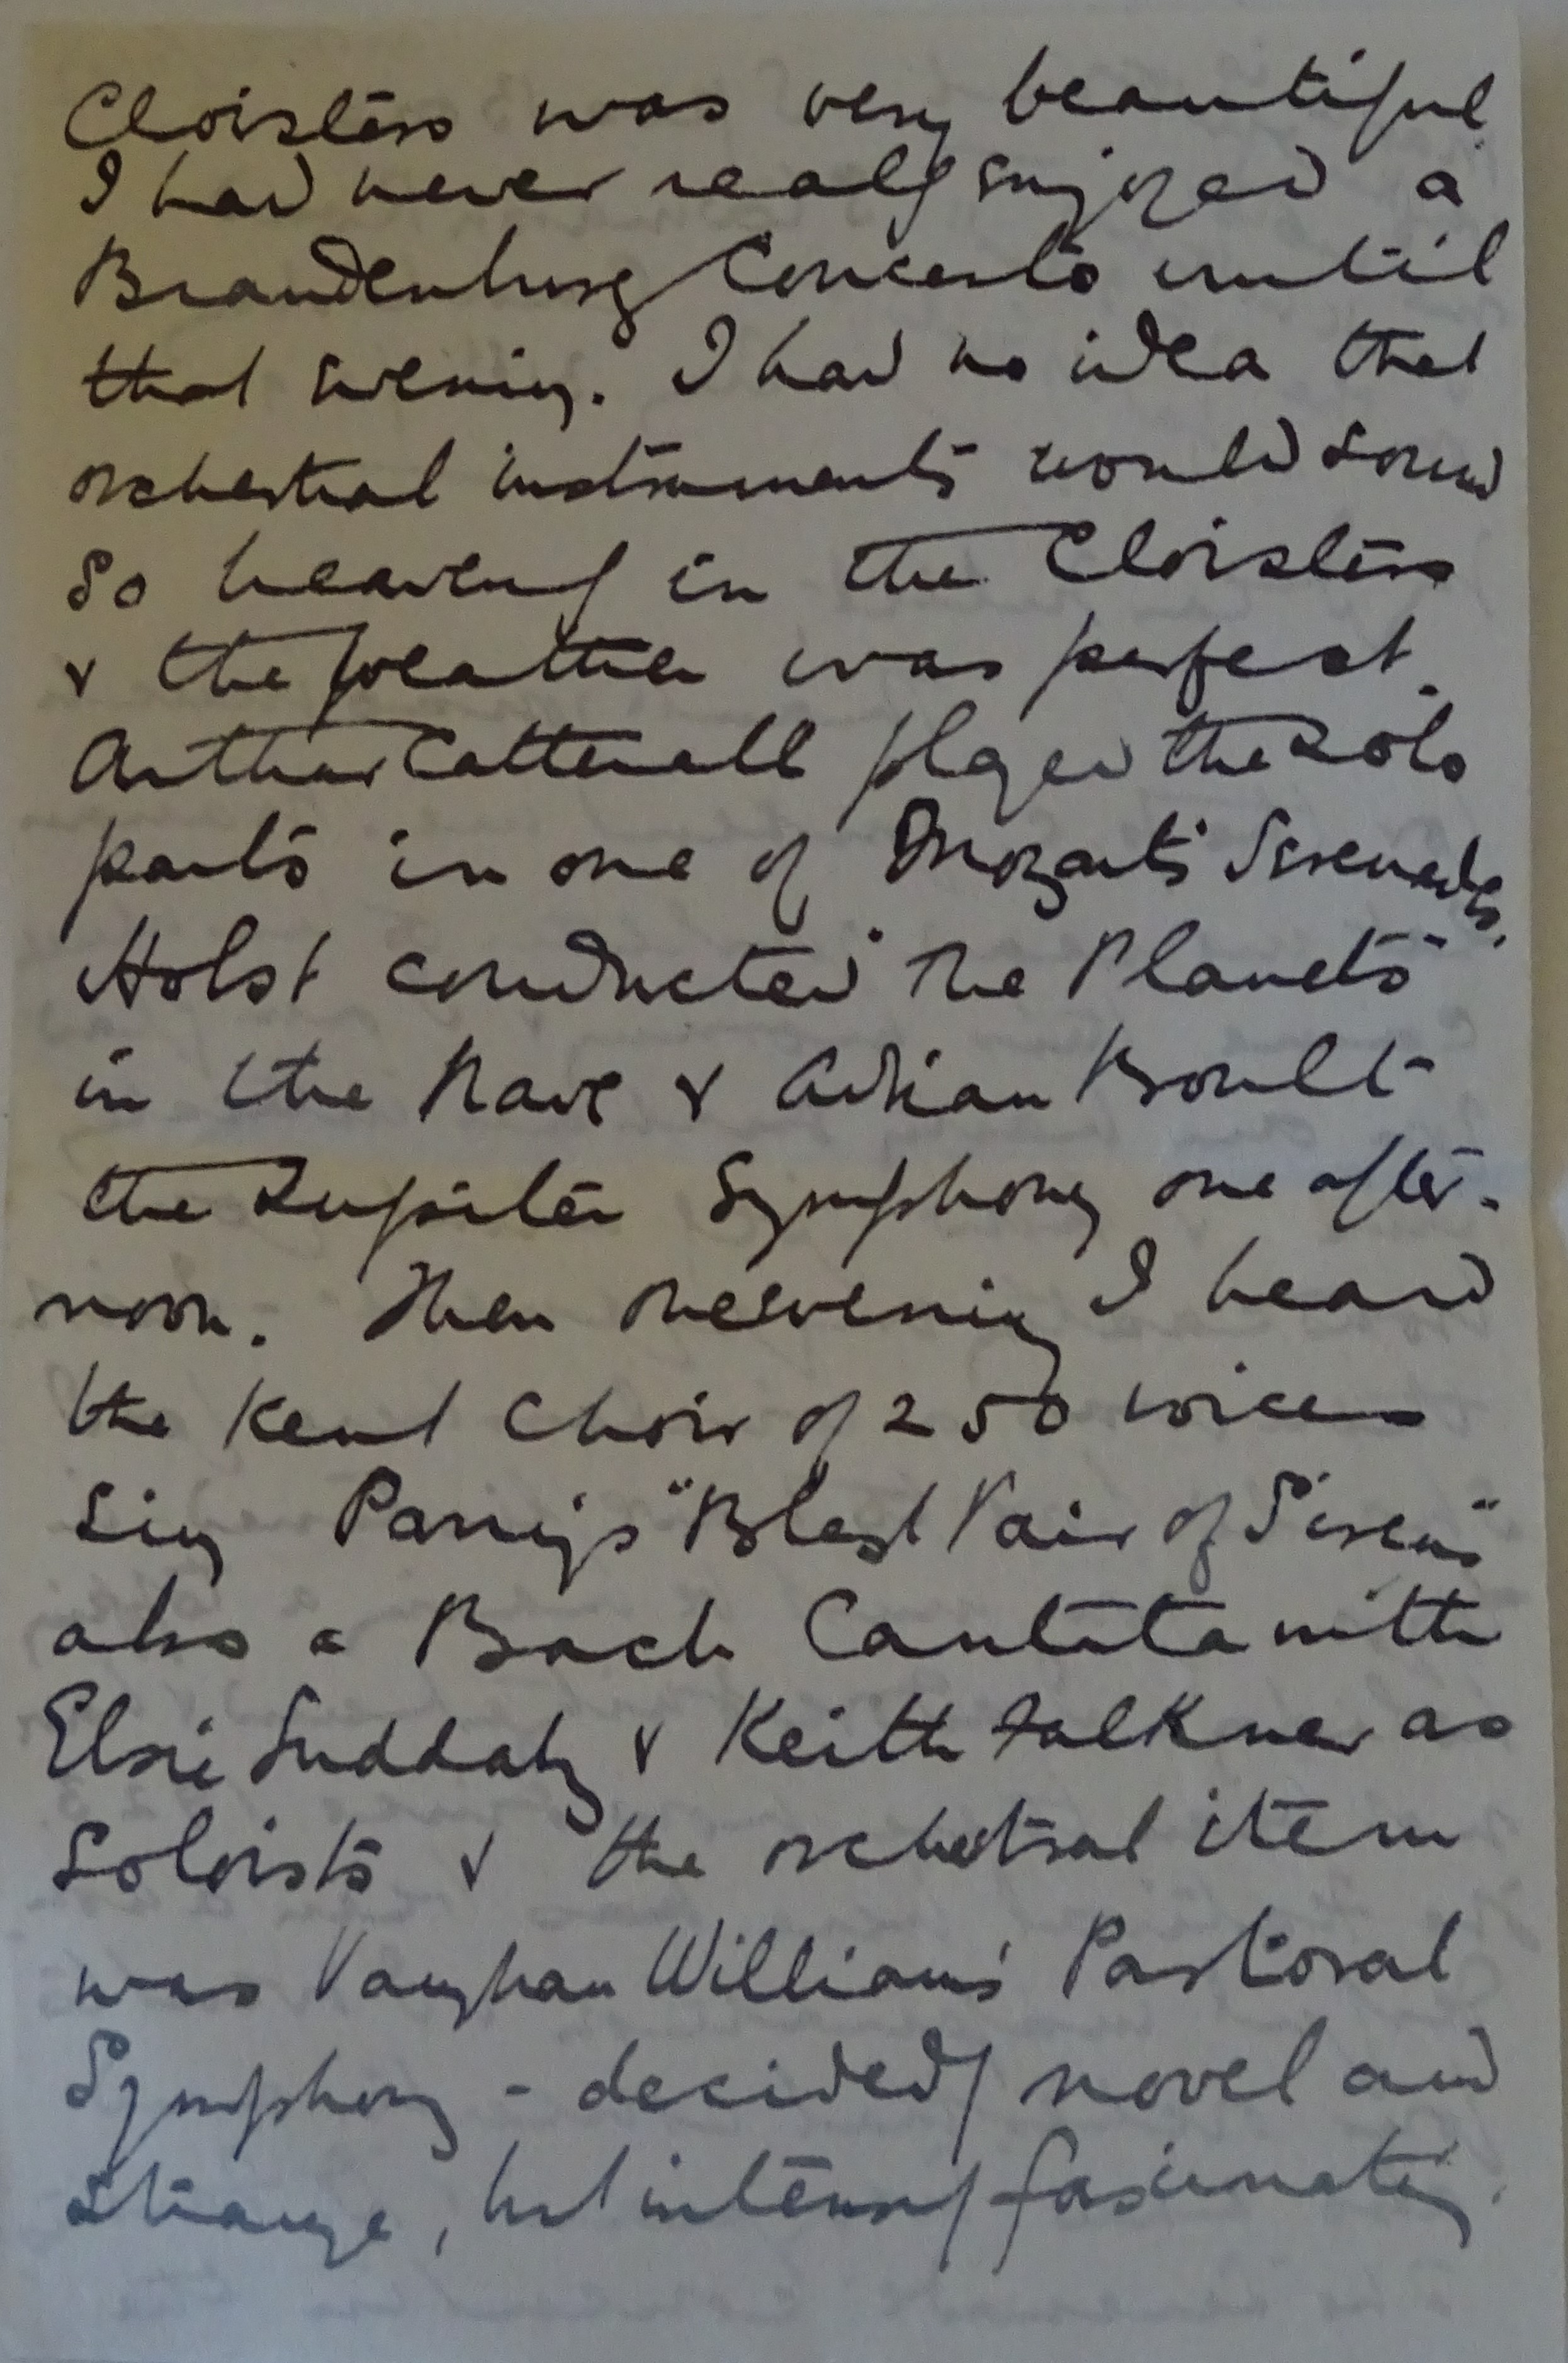 Cloisters was very beautiful.
I had never really enjoyed a
Brandenburg Concerto until
that evening. I had no idea that
orchestral instruments would sound
so heavenly in the Cloisters
& the weather was perfect.
Arthur Catterall played the solo
parts in one of Mozart's Serenades.
Holst conducted "The Planets"
in the Nave & Adrian Boult
the Jupiter Symphony one after-
noon. Then one evening I heard
the Kent Choir of 250 voices
sing Parry's "Blest Pair of Sirens"
also a Bach Cantata with
Elsie Suddaby & Keith Falkner as
soloists & the orchestral item
was Vaughan Williams' Pastoral
Symphony - decidedly novel and
strange, but intensely fascinating.